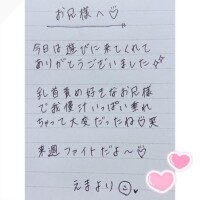 お兄様へ♡
今日は遊びに来てくれて
ありがとうございました
乳首責の好きなお兄様
で我慢汁いっぱい垂れ
ちゃって大変だったね笑
来週ファイトだよ〜♡
えまより